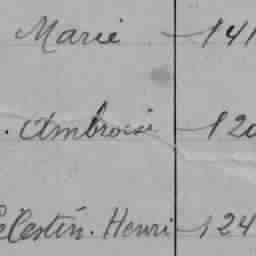 Marie - 141
. Ambroise - 120
Célestin. Henri - 124